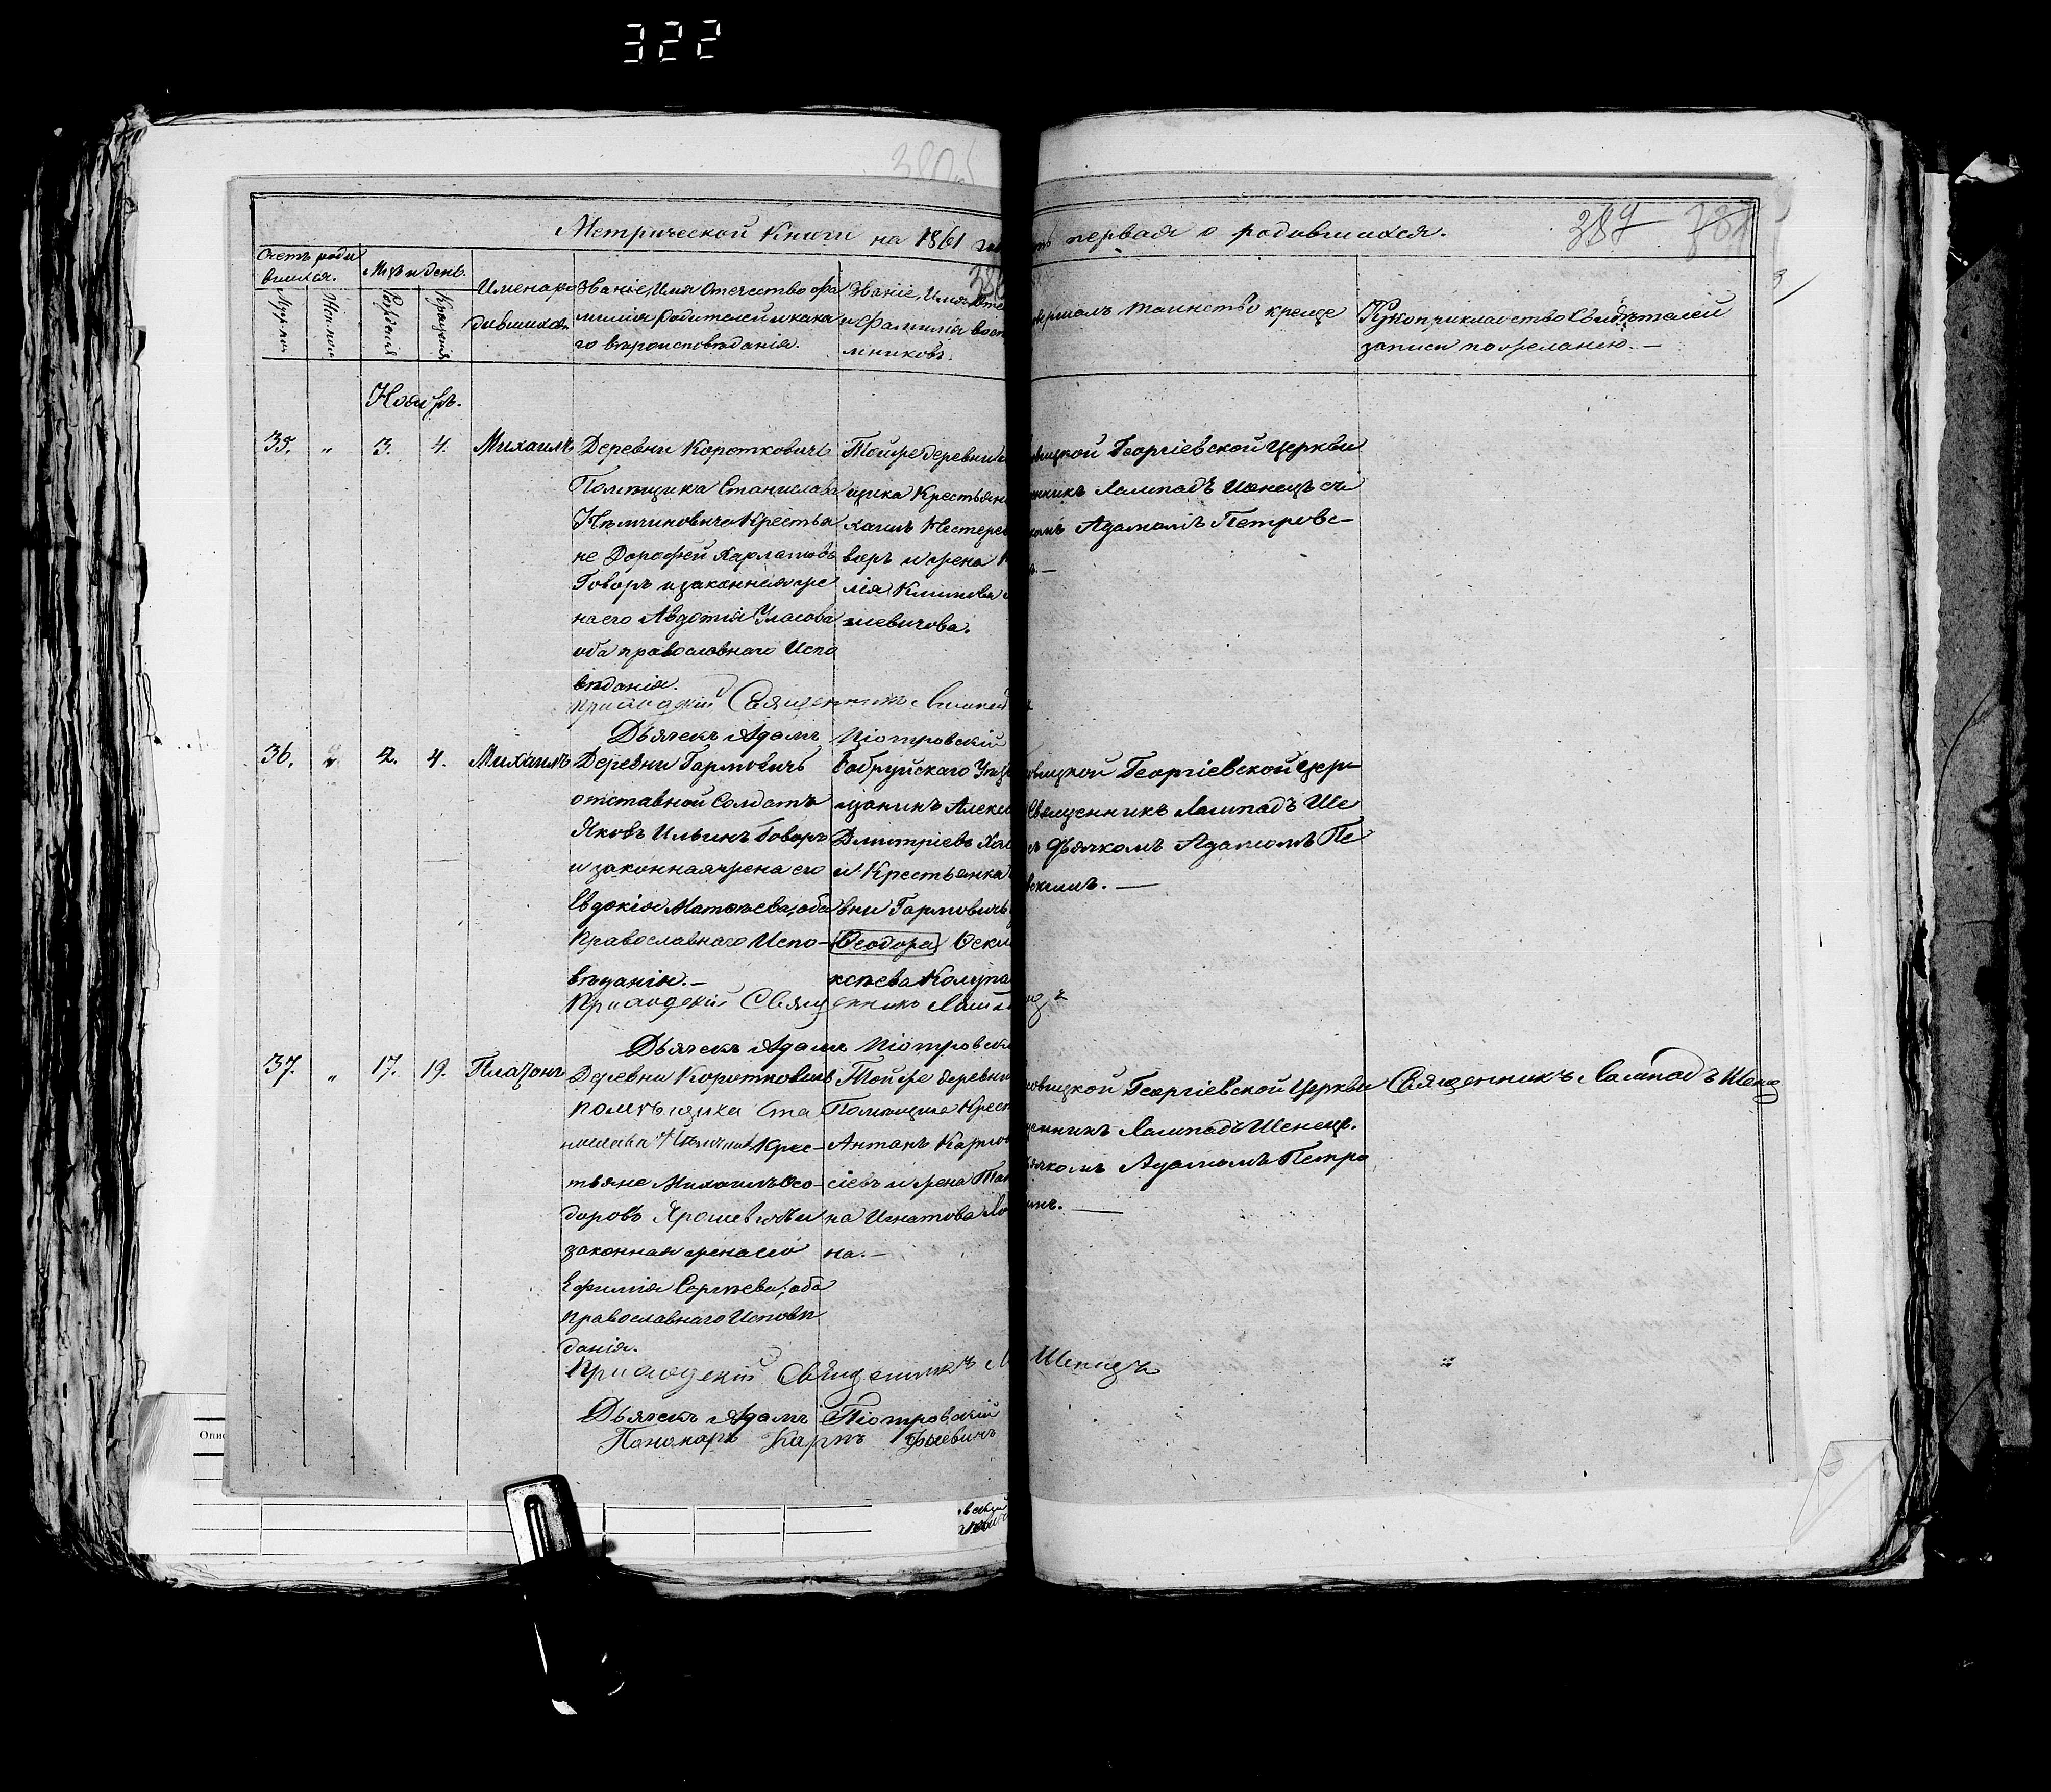 322
Метрической Книги на 1861 первая о родившихся.
387
Счетъ роди
вшихся.
Мѣс. и день.
Имена ро
дившихся.
Званіе, Имя Отечество фа
милія родителей и кака
го вѣроисповѣданія.
Званіе, Имя Оте
и Фамилія восп
мниковъ.
таинство креще
Рукоприкладство Свидѣтелей
записи по желанію. —
Ноябрь.
35. „ 3. 4. Михаилъ
Деревни Короткович
Помѣщика Станислава
Крестья
не Дорофей Харламовъ
Говоръ и законная же
на его Авдотія Уласова
оба православнаго Испо
вѣданія.
Тойже деревни
щика Крестьян
Нестеров
воръ и жена
лія Климова
шевичова.
вицкой Георгіевской Церкви
енникъ Лампадъ Шенецъ съ
комъ Адамомъ Петровс-
Приходскій Священникъ
Дьячекъ Адамъ Піотровскій
36. 2. 4. Михаилъ
Деревни Гармовичь
отставной Солдатъ
Яковъ Ильинъ Говоръ
и законная жена его
Евдокія Матѳеева, оба
Православнаго Испо-
вѣданія. —
Бобруйскаго Уѣз
щанинъ Алекс
Дмитріевъ
и Крестьянка
вни Гармовичь
Ѳеодора
ксѣева
овицкой Георгіевской Цер-
Священникъ Лампадъ Ше
съ Дьячкомъ Адамомъ Пе
вскимъ. —
Приходскій Священникъ
Дьячекъ Адамъ Піотровск
37. „ 17. 19. Платонъ
Деревни Коротковичь
помѣщика Ста
нислава Крес-
тьяне Михаилъ Ѳео-
доровъ Ярошевичъ и
законная жена его
Ефимія Сергѣева, оба
православнаго Исповѣ
данія.
Тойже деревни
Помѣщика Крест
Антонъ Карпов
сіевъ и жена Тат
на Игнатова
на. —
овицкой Георгіевской Церкви
щенникъ Лампадъ Шенецъ.
ячкомъ Адамомъ Петро
имъ. —
Священникъ Лампадъ Шенец
Приходскій Священникъ Л Шенецъ
Дьячекъ Адамъ Піотровскій
Пономарь Карпъ
Опис